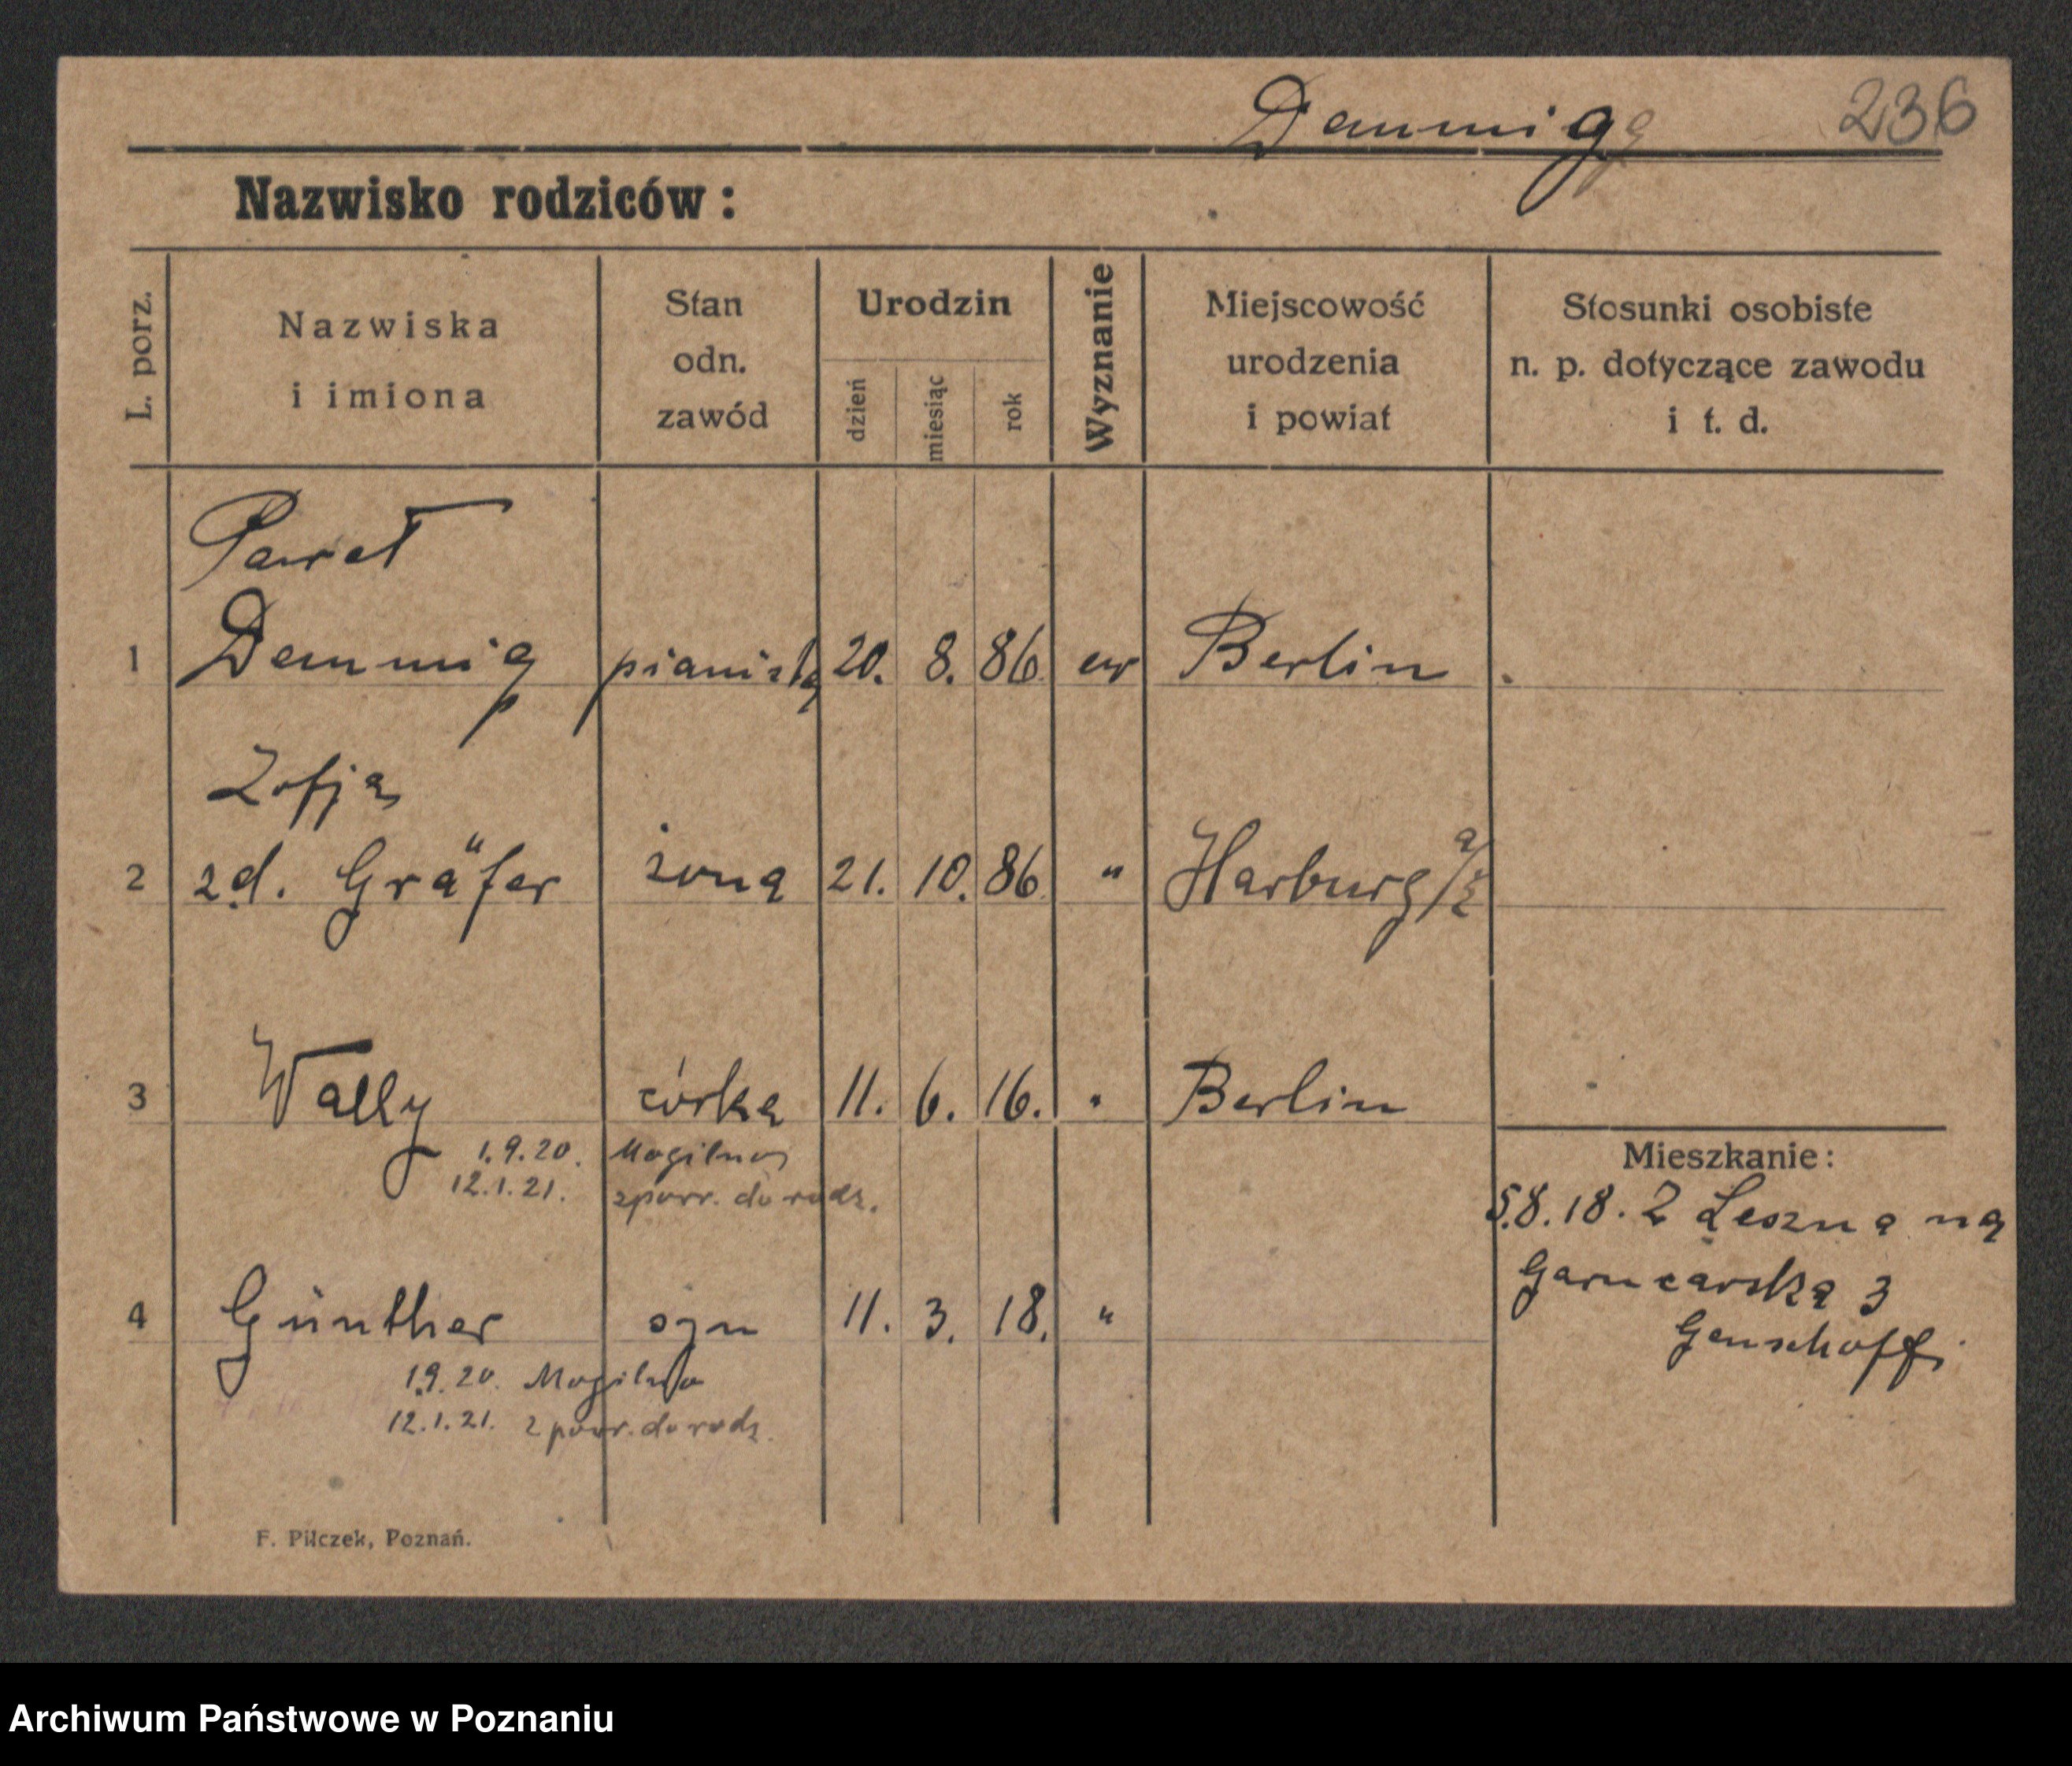 Dammig
236
Nazwisko rodziców:
L. porz.
Nazwiska
i imiona
Stan
odn.
zawód
Urodzin
dzień
miesiąc
rok
Wyznanie
Miejscowość
urodzenia
i powiat
Stosunki osobiste
n. p. dotyczące zawodu
i t. d.
Paweł
1 Dammig pianista 20. 8. 86 ew Berlin
Zofja
2 zd. Gräfer żona 21. 10. 86 " Harburg
3 Wally córka 11. 6. 16. " Berlin
1.9.20. Mogilno
12.1.21. zpow. do rodz.
4 Günther syn 11. 3. 18. "
1.9.20. Mogilno
12.1.21. z pow. do rodz.
Mieszkanie:
5.8.18. Z Leszna na
Garncarska 3
Genschoff
F. Pilczek, Poznań.
Archiwum Państwowe w Poznaniu